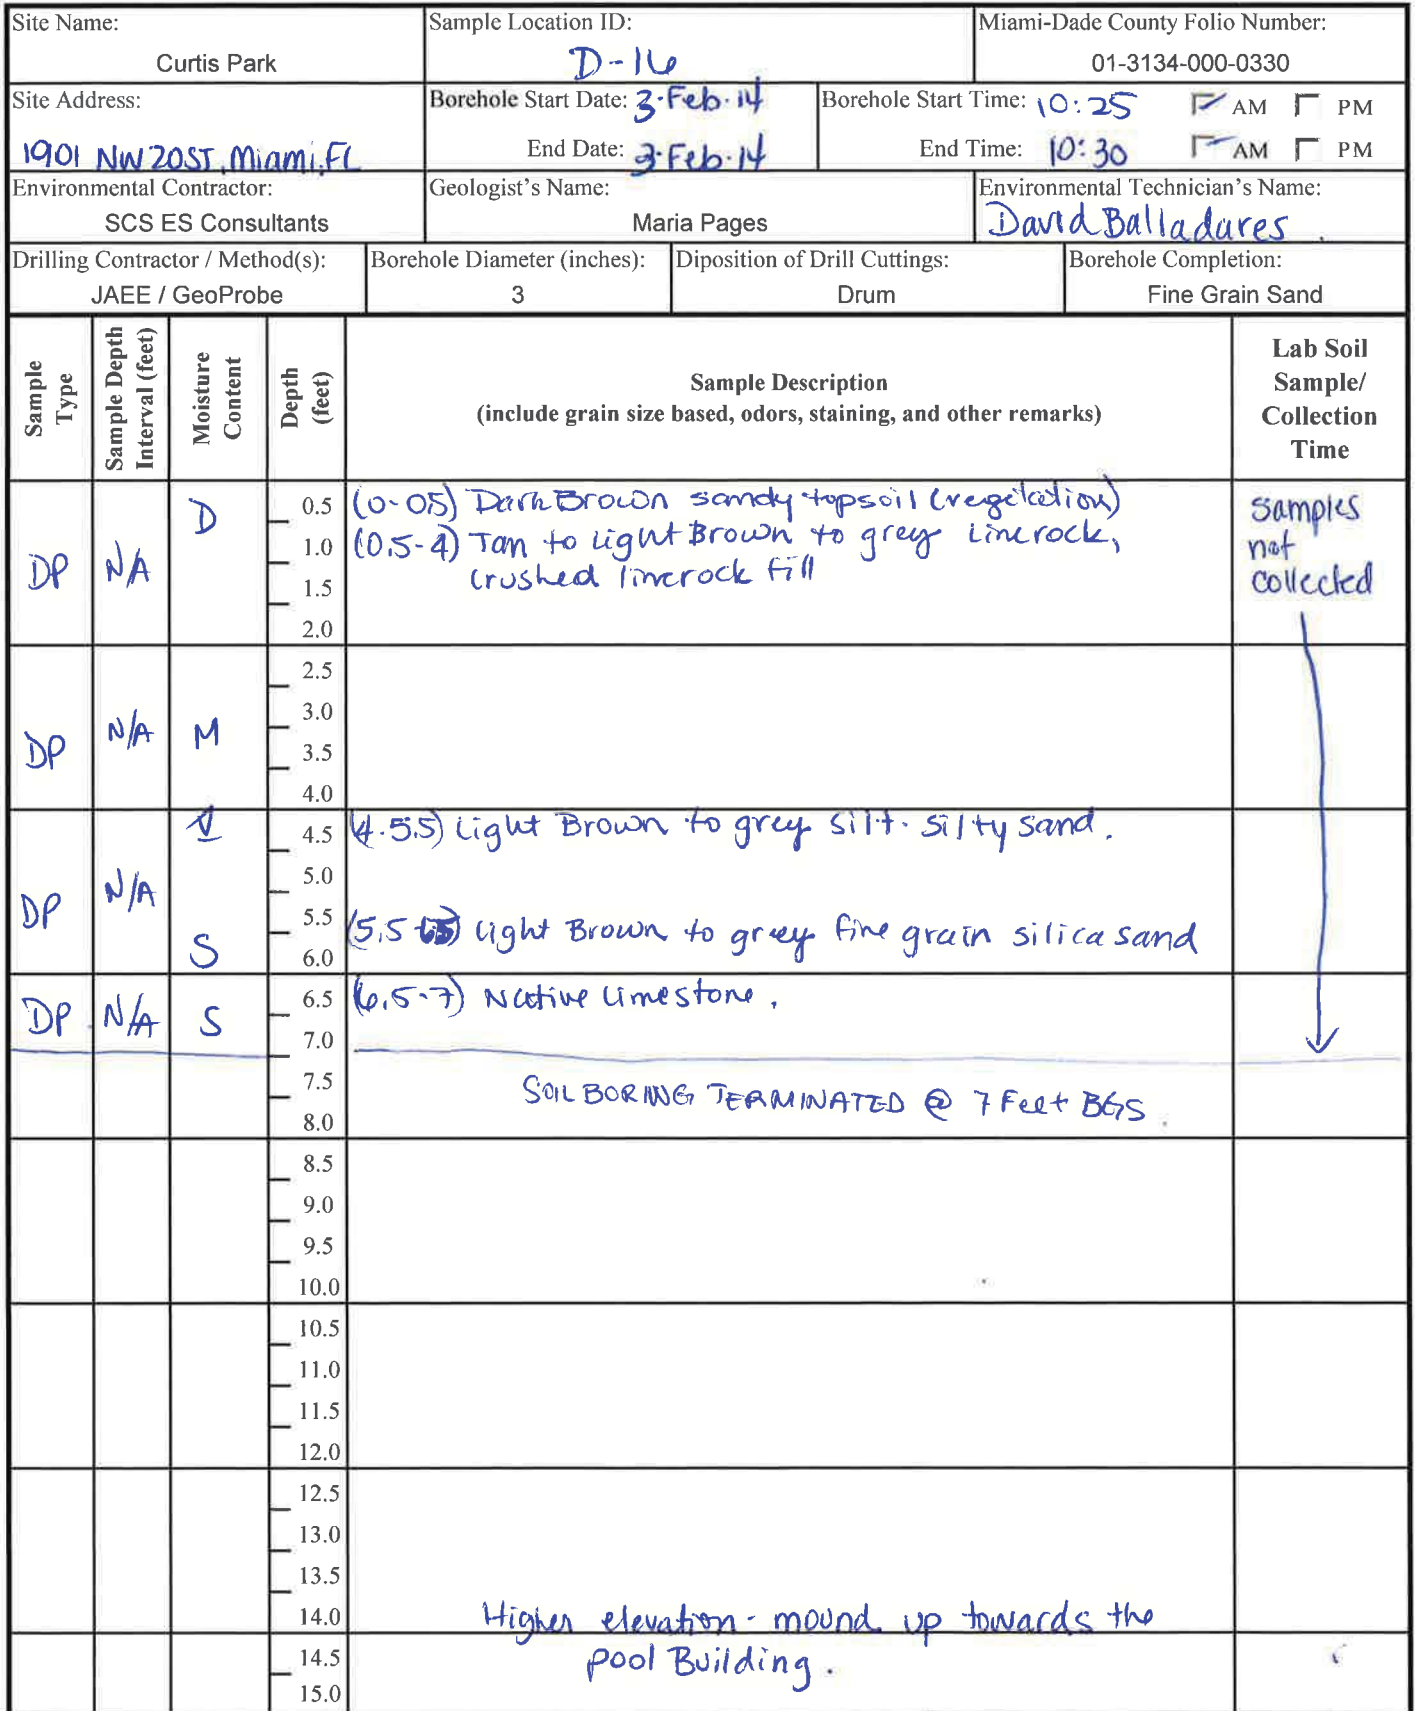 Site Name:
Curtis Park
Sample Location ID:
D-16
Miami-Dade County Folio Number:
01-3134-000-0330
Site Address:
1901 NW 20 ST, Miami, FL
Borehole Start Date: 3·Feb·14
End Date: 3·Feb·14
Borehole Start Time: 10:25 AM PM
End Time: 10:30 AM PM
Environmental Contractor:
SCS ES Consultants
Geologist's Name:
Maria Pages
Environmental Technician's Name:
David Balladares
Drilling Contractor / Method(s):
JAEE / GeoProbe
Borehole Diameter (inches):
3
Diposition of Drill Cuttings:
Drum
Borehole Completion:
Fine Grain Sand
Sample Type
Sample Depth Interval (feet)
Moisture Content
Depth (feet)
Sample Description
(include grain size based, odors, staining, and other remarks)
Lab Soil
Sample/
Collection
Time
DP
N/A
D
0.5
1.0
1.5
2.0
(0-05) Dark Brown sandy topsoil (vegetation)
(0.5-4) Tan to light Brown to grey limerock,
crushed limerock fill
samples
not
collected
DP
N/A
M
2.5
3.0
3.5
4.0
DP
N/A
S
4.5
5.0
5.5
6.0
(4.5.5) Light Brown to grey silt. silty sand.
(5.5 light Brown to grey fine grain silica sand
DP
N/A
S
6.5
7.0
7.5
8.0
(6.5-7) Native limestone.
SOIL BORING TERMINATED @ 7 Feet BGS
8.5
9.0
9.5
10.0
10.5
11.0
11.5
12.0
12.5
13.0
13.5
14.0
14.5
15.0
Higher elevation - mound up towards the
pool Building.